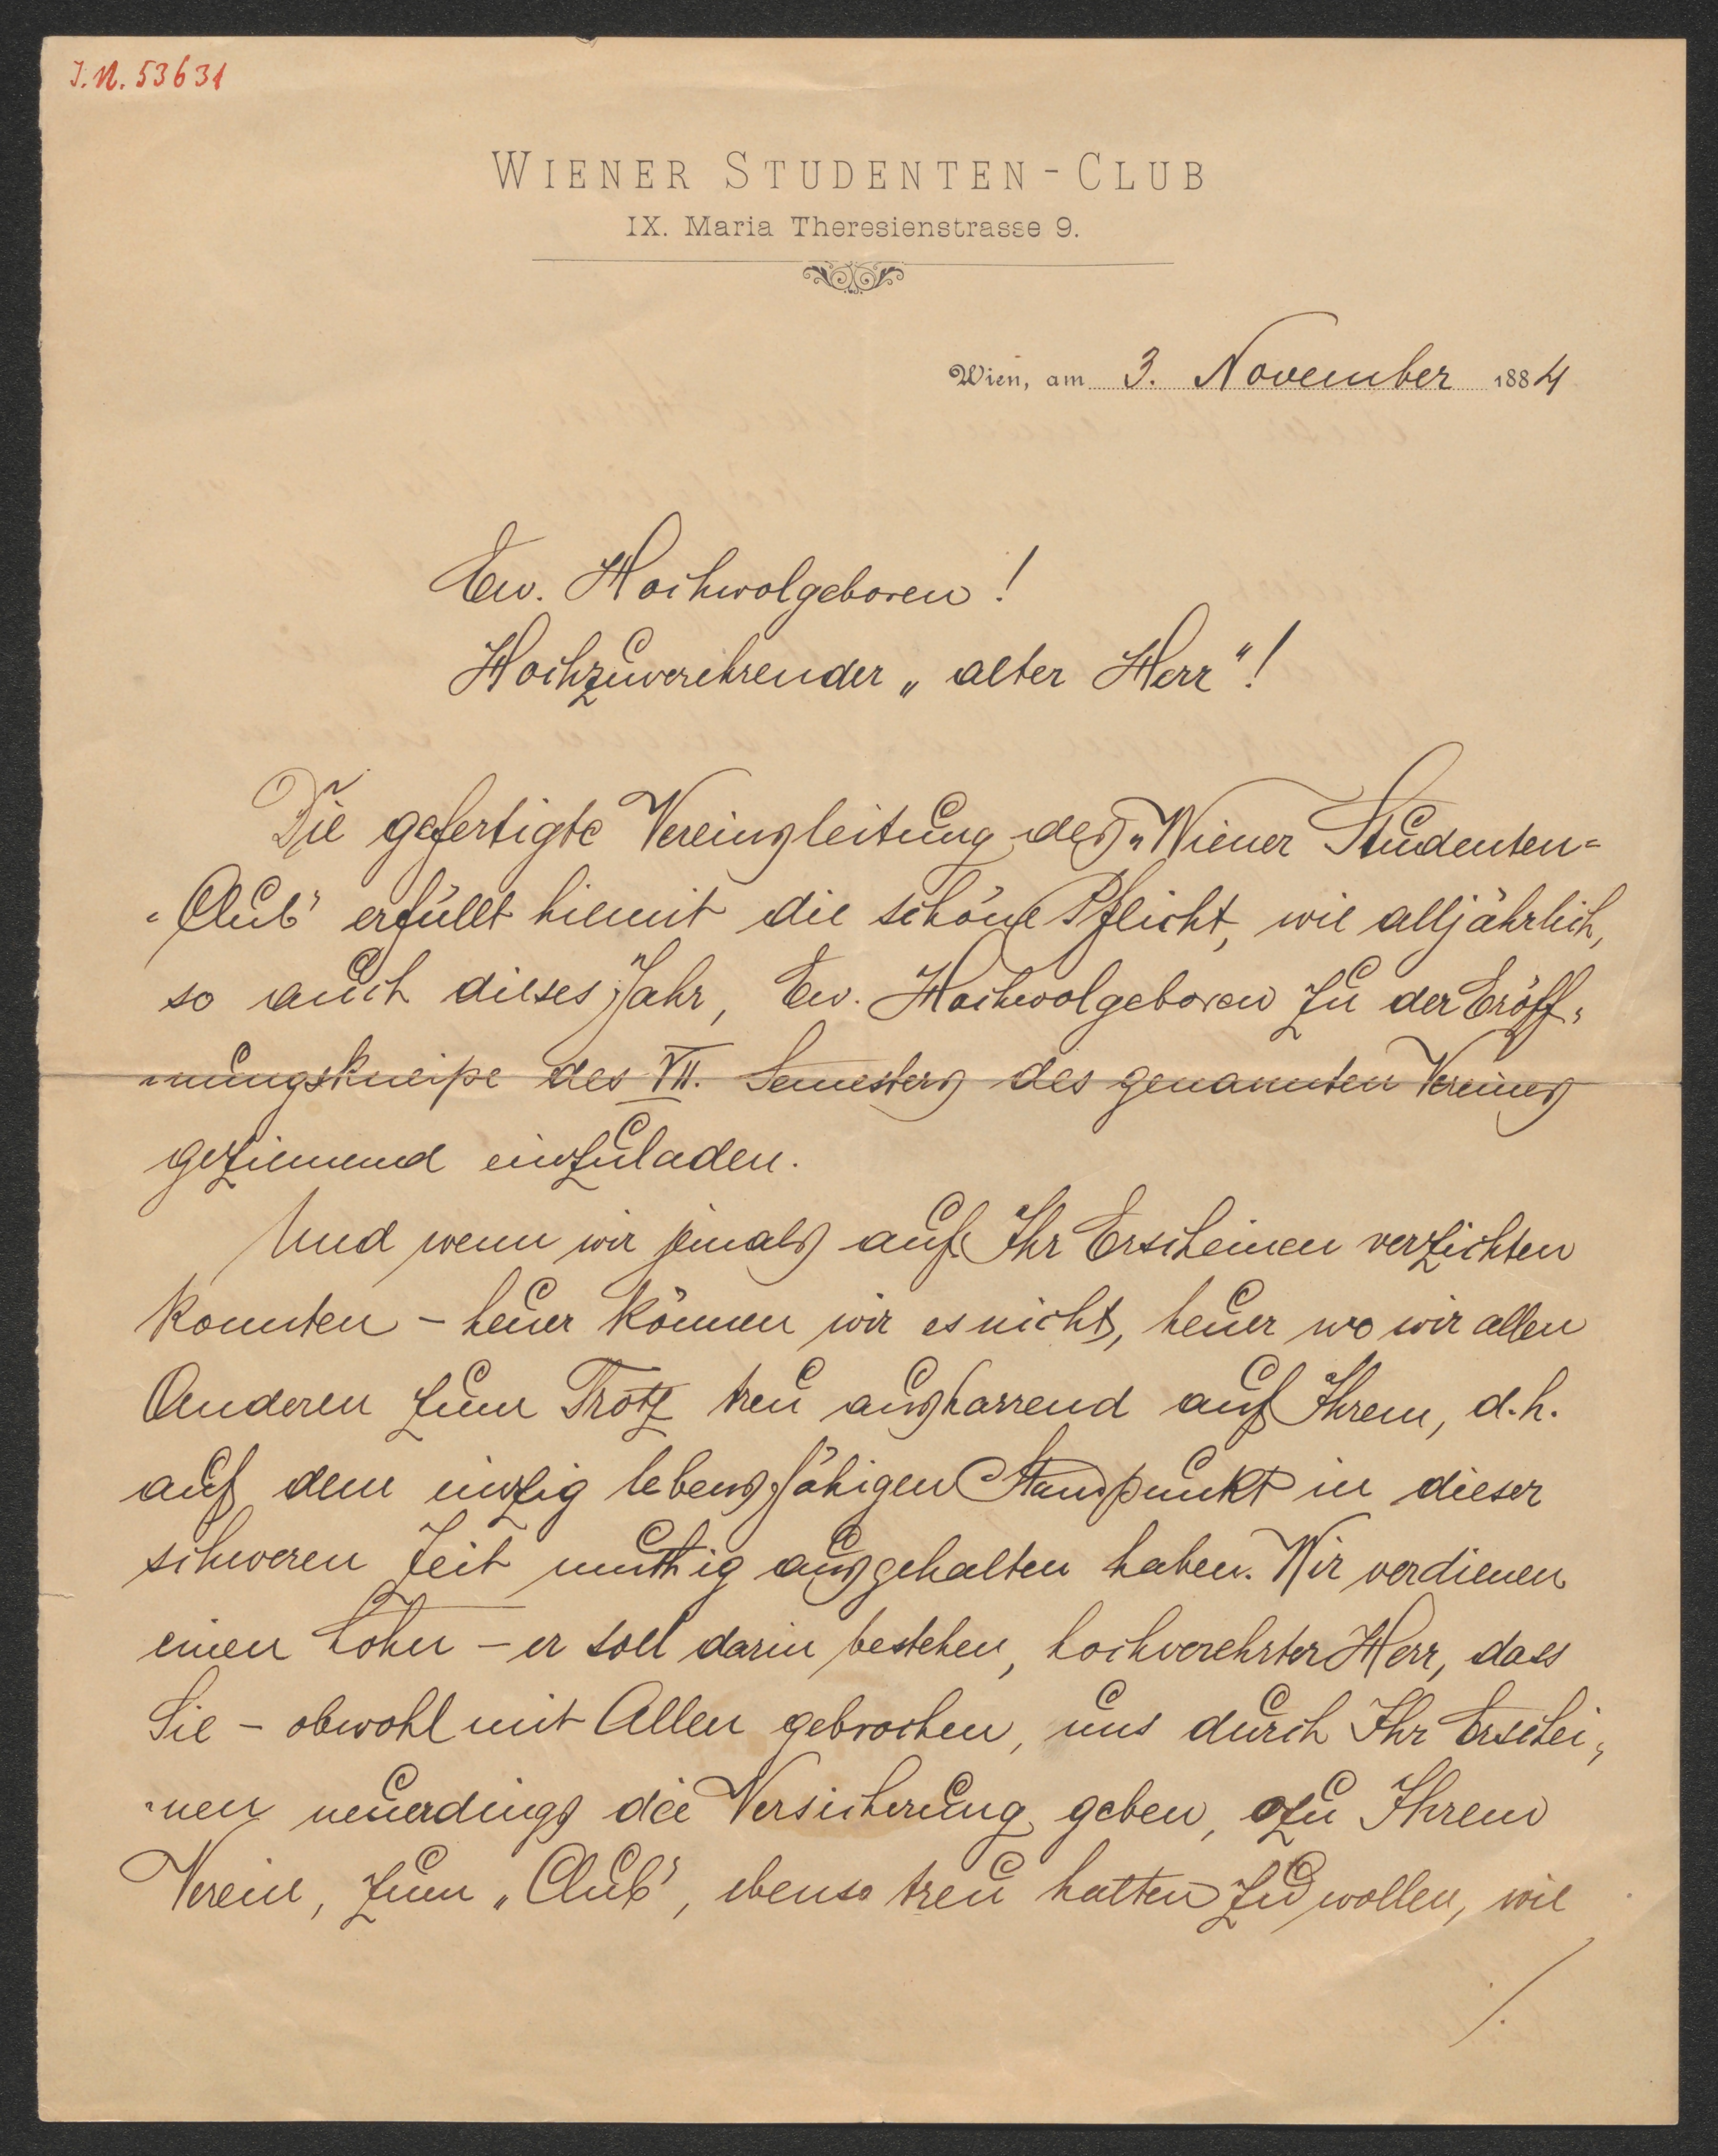 I.N. 53631
WIENER STUDENTEN-CLUB
IX. Maria Theresienstrasse 9.
Wien, am 3. November 1884
Ew. Hochwolgeboren!
Hochzuverehrender „alter Herr"!
Die gefertigte Vereinsleitung des „Wiener Studenten-
-Club" erfüllt hiemit die schöne Pflicht, wie alljährlich,
so auch dieses Jahr, Ew. Hochwolgeboren zu der Eröff-
-nungskneipe des VII. Semesters des genannten Vereines
geziemend einzuladen.
Und wenn wir jemals auf Ihr Erscheinen verzichten
konnten – heuer können wir es nicht, heuer wo wir allen
Anderen zum Trotz treu ausharrend auf Ihrem, d.h.
auf dem einzig lebensfähigen Standpunkt in dieser
schweren Zeit muthig ausgehalten haben. Wir verdienen
einen Lohn – er soll darin bestehen, hochverehrter Herr, dass
Sie – obwohl mit Allen gebrochen, uns durch Ihr Erschei-
-nen neuerdings die Versicherung geben, zu Ihrem
Verein, zum „Club", ebenso treu halten zu wollen, wie
./.